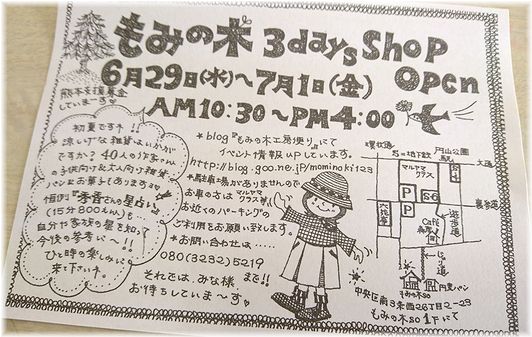 もみの木 3days Shop Open
6月29日(水)〜7月1日(金)
AM10:30〜PM4:00
熊本支援募金
していまーす♡
初夏です!!
涼しげな雑貨はいかが
ですか?40人の作家さん
の子供向け&大人向け雑貨、
パンとお菓子もあります♡
恒例『李香さんの星占い』
(15分800えん)も…
自分や家族の星を知って
今後の参考に〜!!
ひと時の楽しみに
来て下さい。
*blog『もみの木工房便り』にて
イベント情報upしています。
http://blog.goo.ne.jp/mominoki123
*駐車場がありませんので
お車の方は マルヤマクラス等
お近くのパーキングの
ご利用をお願い致します。
*お問い合わせは……
080(3232)5219
まで!!
それでは、みな様
お待ちしていま〜す♡
環状通
円山公園駅
大通
S=地下鉄
マルヤマクラス
P
P
S6
裏参道
六花亭
遊歩道
Café
じょうてつ通
円麦パン
もみの木SO
中央区南3条西26丁目2-23
もみの木SO 1Fにて